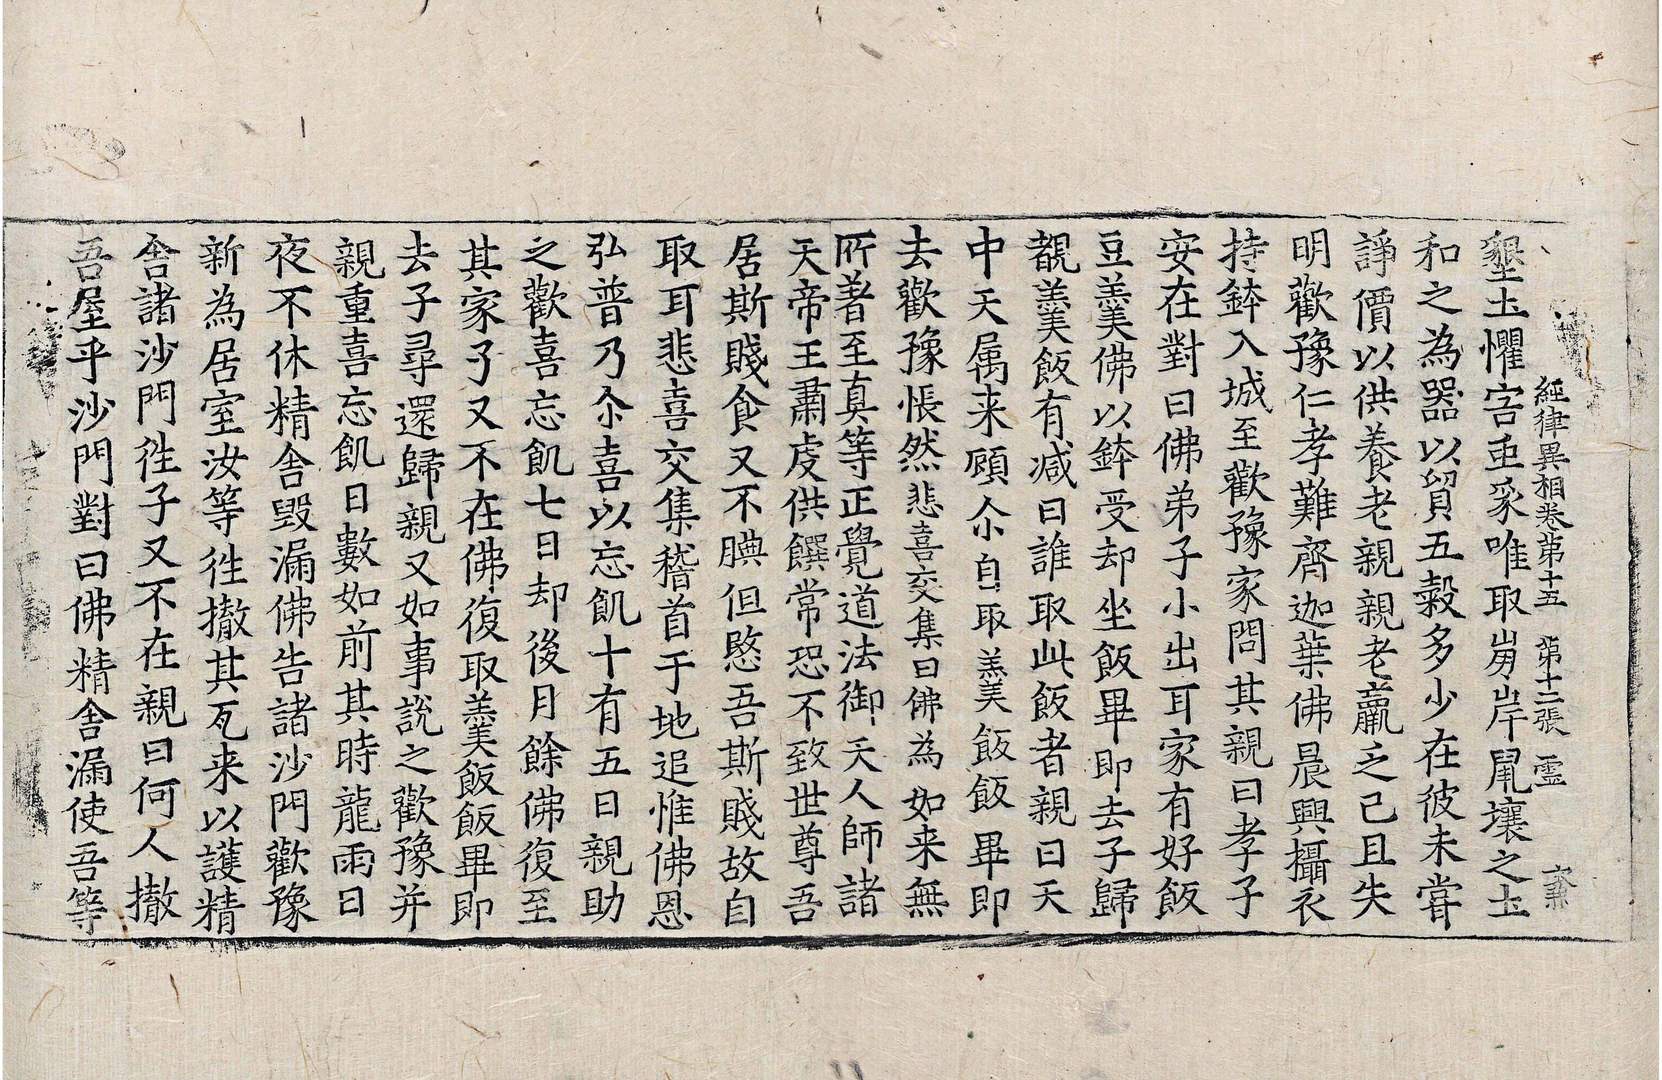 經律異相卷第十五 第十二張 霊
墾土懼害重豖唯取崩岸䑕壤之土
和之為器以貿五穀多少在彼未甞
諍價以供養老親親老羸乏己且失
明歡豫仁孝難齊迦葉佛晨興攝衣
持鉢入城至歡豫家問其親曰孝子
安在對曰佛弟子小出耳家有好飯
豆羹美佛以鉢受却坐飯畢即去子歸
覩羹飯有減曰誰取此飯者親曰天
中天屬来顧尒自取羹飯飯畢即
去歡豫悵然悲喜交集曰佛為如来無
所著至真等正覺道法御天人師諸
天帝王肅虔供饌常恐不致世尊吾
居斯賤食又不腆但愍吾斯賤故自
取耳悲喜交集稽首于地追惟佛恩
弘普乃尒喜以忘飢十有五日親助
之歡喜忘飢七日却後月餘佛復至
其家子又不在佛復取羹飯飯畢即
去子尋還歸親又如事說之歡豫并
親重喜忘飢日數如前其時龍雨日
夜不休精舎毀漏佛告諸沙門歡豫
新為居室汝等徃撤其瓦来以護精
舎諸沙門徃子又不在親曰何人撤
吾屋乎沙門對曰佛精舎漏使吾等